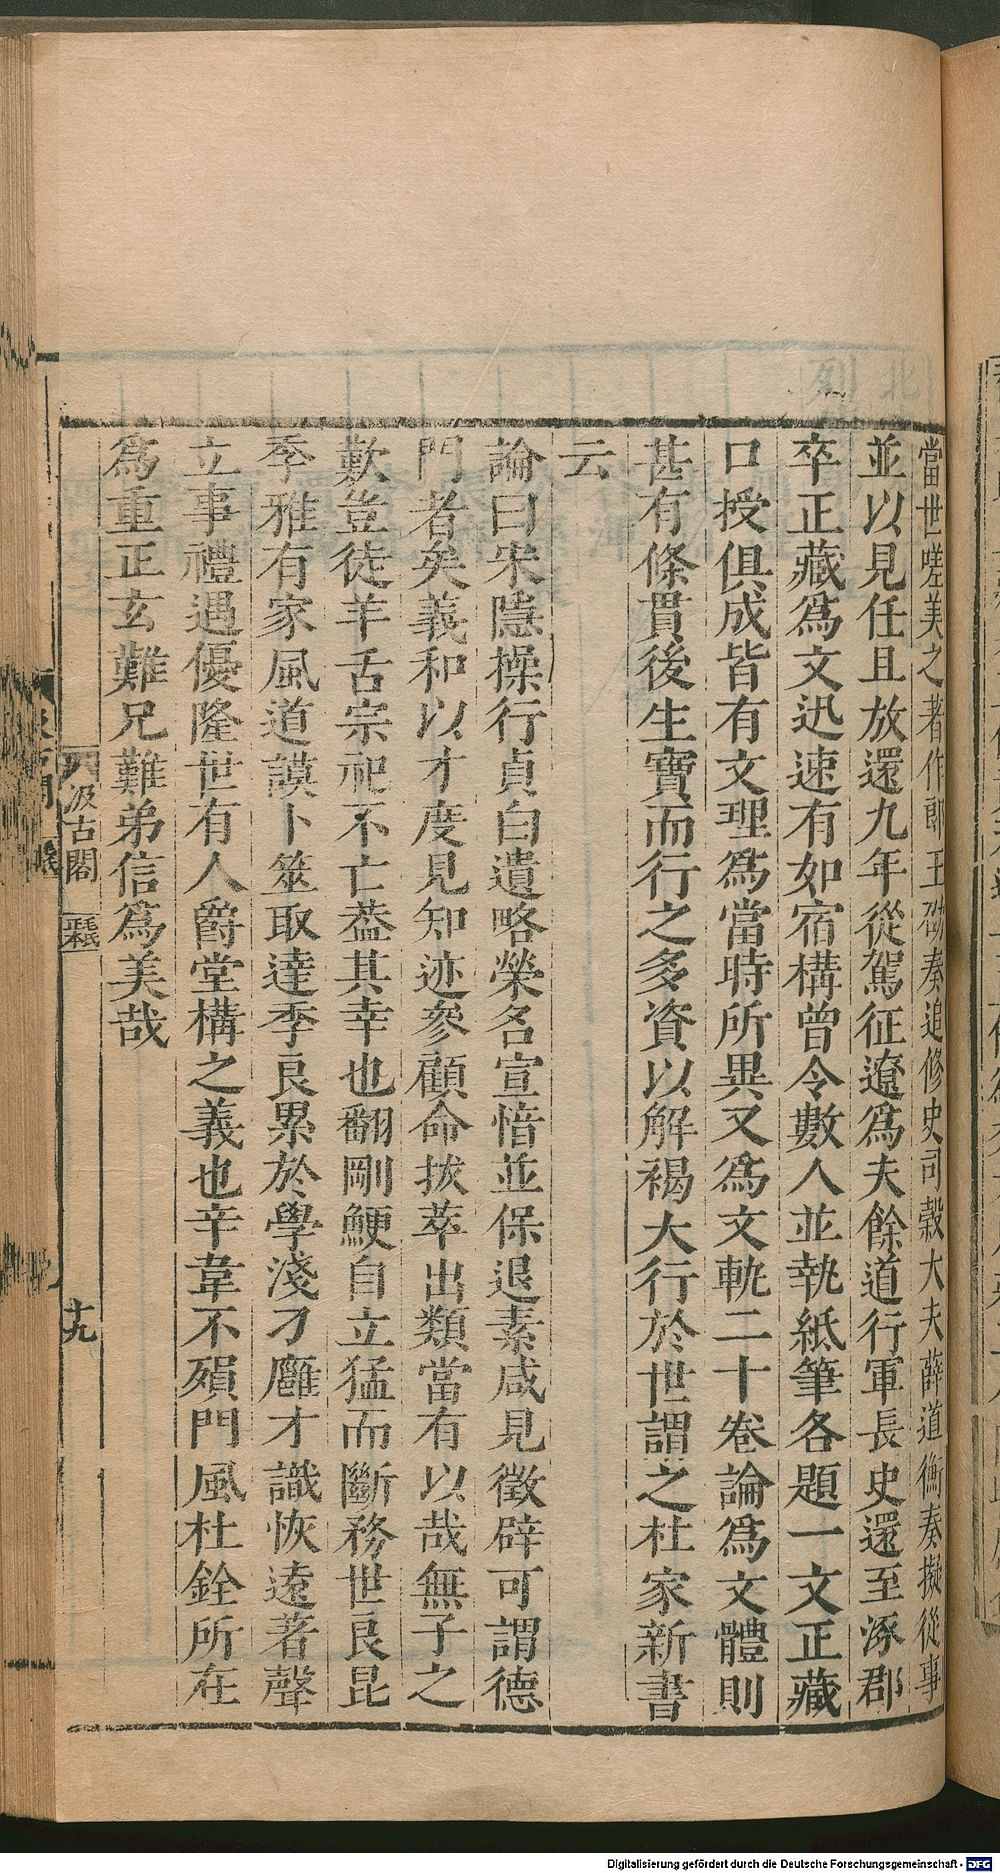 當世嗟美之著作郎王劭奏追修史司穀大夫薛道衡奏擬從事
並以見任且放還九年從駕征遼爲夫餘道行軍長史還至涿郡
卒正藏爲文迅速有如宿構曾令數人並執紙筆各題一文正藏
口授俱成皆有文理爲當時所異又爲文軌二十卷論爲文體則
甚有條貫後生寶而行之多資以解褐大行於世謂之杜家新書
云
論曰宋隱操行貞白遺略榮名宣愔並保退素咸見徵辟可謂德
門者矣義和以才度見知迹參顧命拔萃出類當有以哉無子之
歎豈徒羊舌宗祀不亡蓋其幸也翻剛鯁自立猛而斷務世良昆
季雅有家風道謨卜筮取達季良累於學淺刁雝才識恢遠著聲
立事禮遇優隆世有人爵堂構之義也辛韋不殞門風杜銓所在
爲重正玄難兄難弟信爲美哉
汲古閣
十九
北
列
Digitalisierung gefördert durch die Deutsche Forschungsgemeinschaft - DFG